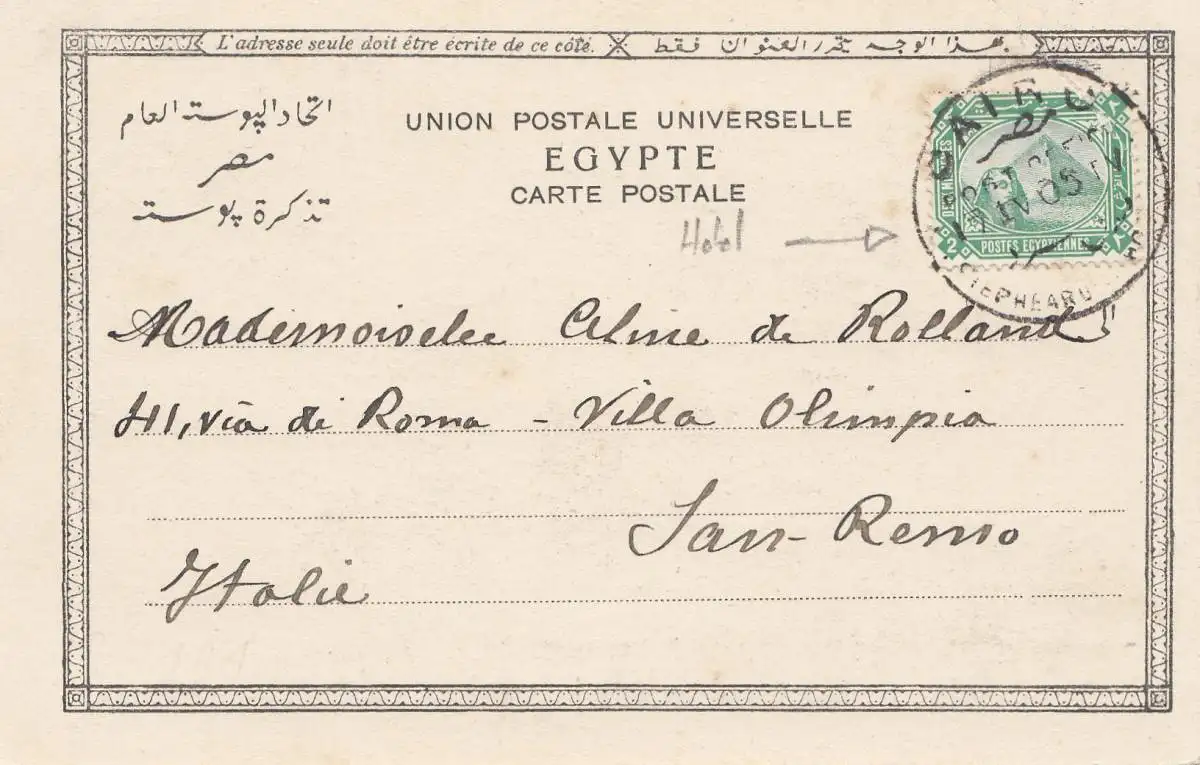 L'adresse seule doit être écrite de ce côté. هذا الوجه يحرر العنوان فقط
اتحاد البوسته العام
مصر
تذكرة بوسته
UNION POSTALE UNIVERSELLE
EGYPTE
CARTE POSTALE
Hotel
CAIRO
مصر
IV 05
POSTES EGYPTIENNES
2
Mademoiselle Celine de Rolland
41, via di Roma - Villa Olimpia
San-Remo
Italie